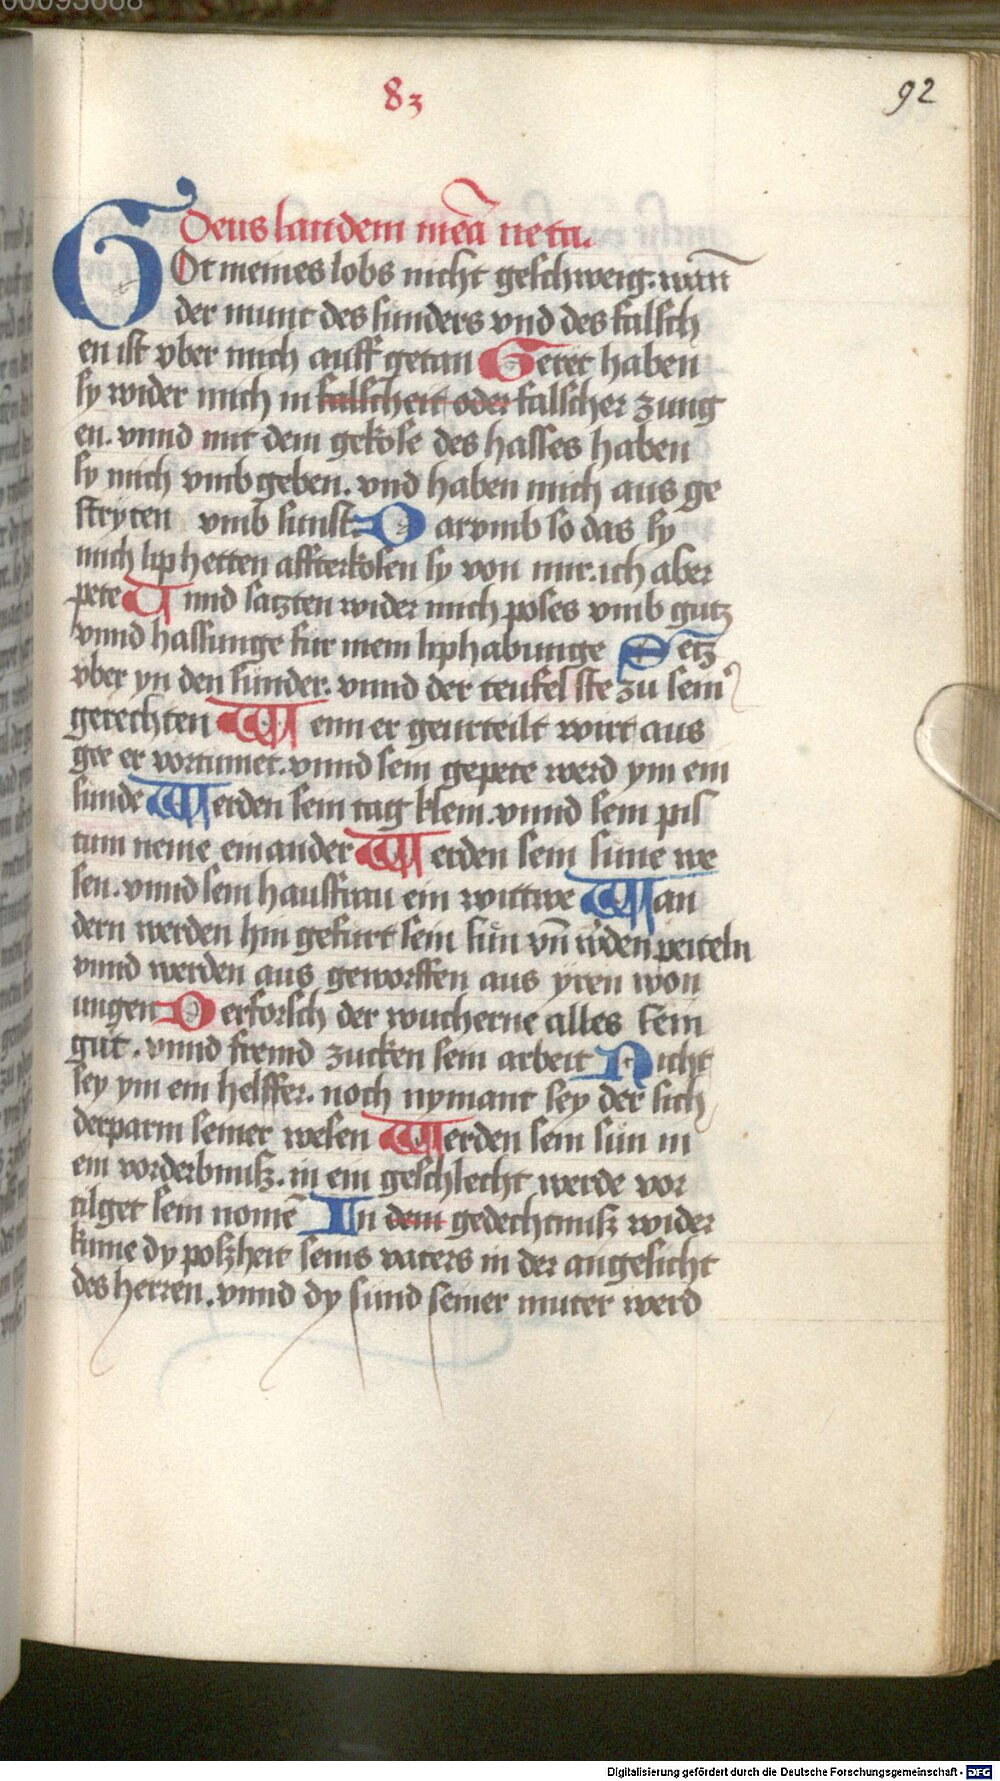 00093668
83
92
Deus laudem meā ne ta.
GOt meines lobs nicht geschweig. wan̄
der munt des sunders vnd des falsch
en ist vber mich auff getan Geret haben
sy wider mich in falscheit oder falscher zung
en. vnnd mit dem gekose des hasses haben
sy mich vmbgeben. vnd haben mich aus ge
stryten vmb sunst Darvmb so das sy
mich lip hetten affterkosen sy von mir. ich aber
pete Vnnd satzten wider mich poses vmb gutz
vnnd hassunge fur mein liphabunge Setz
vber yn den sunder. vnnd der teufel ste zu sein
gerechten Wenn er geurteilt wirt aus
gee er vortumet. vnnd sein gepete werd ym ein
sunde Werden sein tag klein. vnnd sein pis
tum neme ein ander Werden sein sune we
sen. vnnd sein hausfrau ein wittwe Wan
dern werden hin gefurt sein sun vn̄ wden peiteln
vnnd werden aus geworffen aus yren won
ungen Derforsch der wucherne alles sein
gut. vnnd fremd zucken sein arbeit Nicht
sey ym ein helffer. noch nymant sey der sich
derparm seiner weisen Werden sein sun in
ein vorderbnusz. in ein geschlecht werde vor
tilget sein nomē In dem gedechtnusz wider
kume dy poszheit seins vaters in der angesicht
des herren. vnnd dy sund seiner muter werd
Digitalisierung gefördert durch die Deutsche Forschungsgemeinschaft - DFG